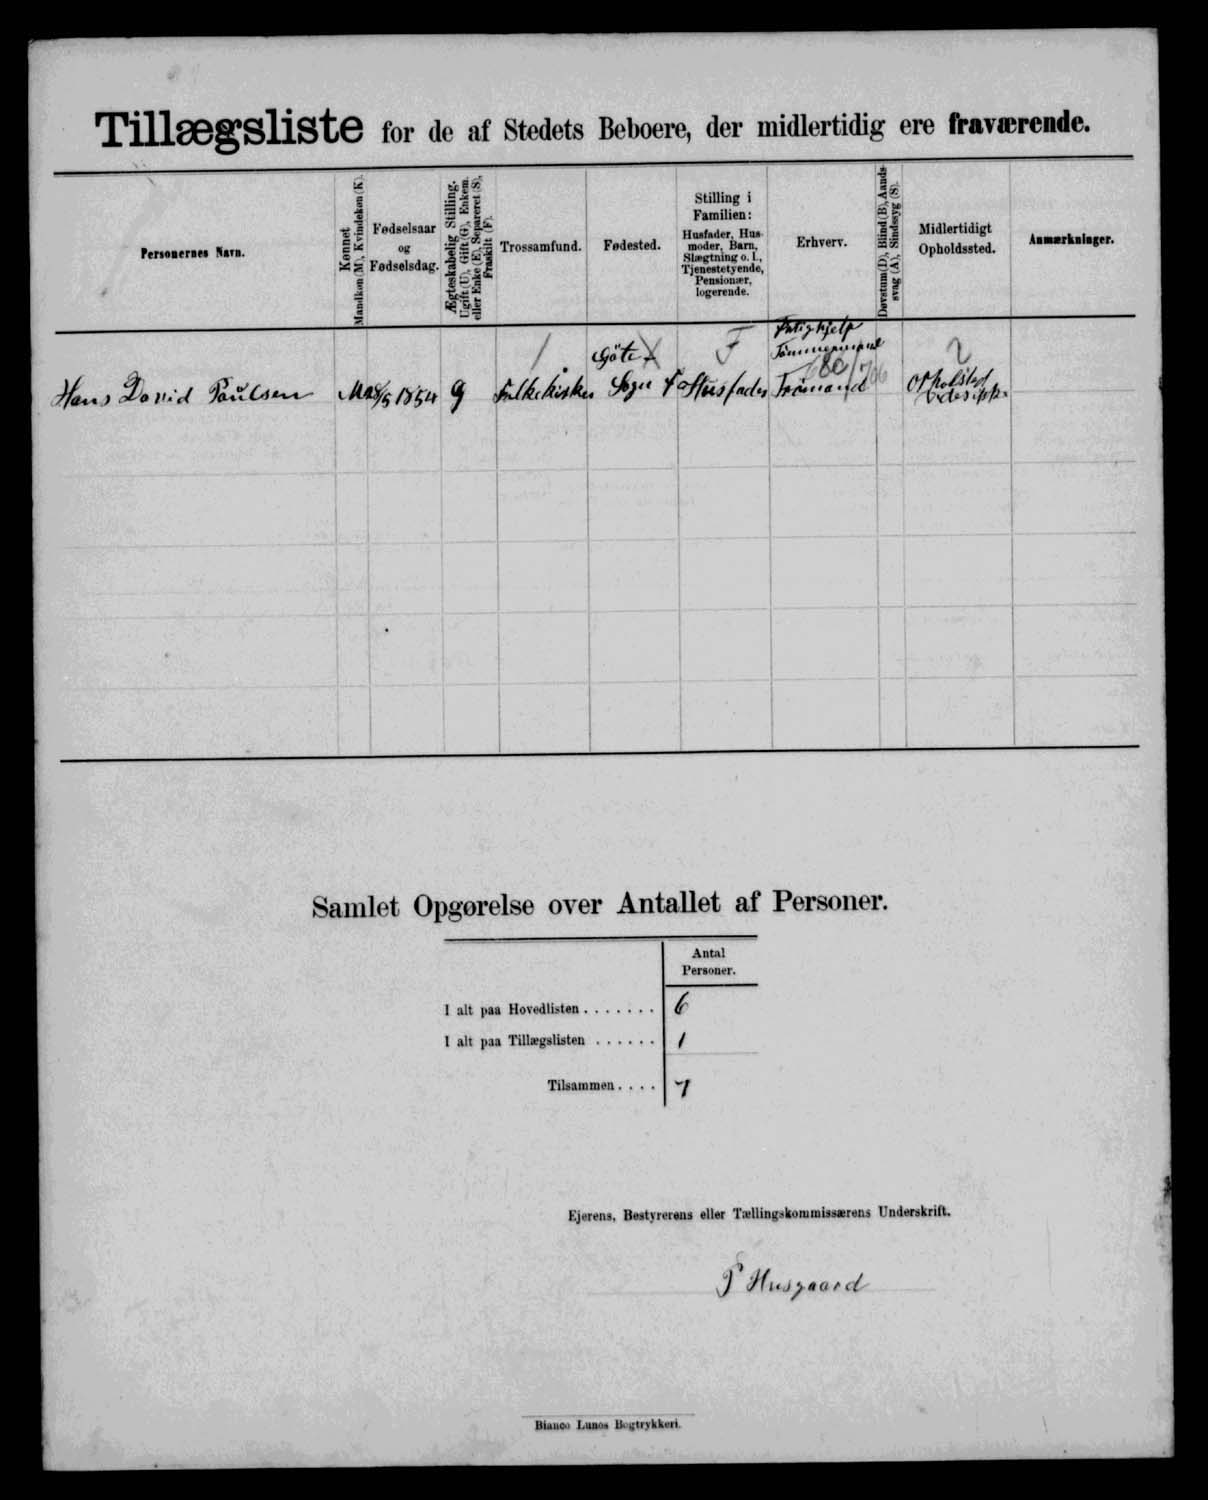 Tillægsliste for de af Stedets Beboere, der midlertidig ere fraværende.
Personernes Navn.
Kønnet
Mandkøn (M), Kvindekøn (K).
Fødselsaar
og
Fødselsdag.
Ægteskabelig Stilling.
Ugift (U), Gift (G), Enkem.
eller Enke (E), Separeret (S),
Fraskilt (F).
Trossamfund.
Fødested.
Stilling i
Familien:
Husfader, Hus-
moder, Barn,
Slægtning o. l.,
Tjenestetyende,
Pensionær,
logerende.
Erhverv.
Døvstum (D), Blind (B), Aands-
svag (A), Sindssyg (S).
Midlertidigt
Opholdssted.
Anmærkninger.
Hans David Paŭlsen
M
28/5 1854
g
Folkekirken
Göte
Sogn
F
Husfader
Fatighjelp
Tömmermand
2
Samlet Opgørelse over Antallet af Personer.
Antal
Personer.
I alt paa Hovedlisten ....... 6
I alt paa Tillægslisten ...... 1
Tilsammen .... 7
Ejerens, Bestyrerens eller Tællingskommissærens Underskrift.
P Husgaard
Bianco Lunos Bogtrykkeri.